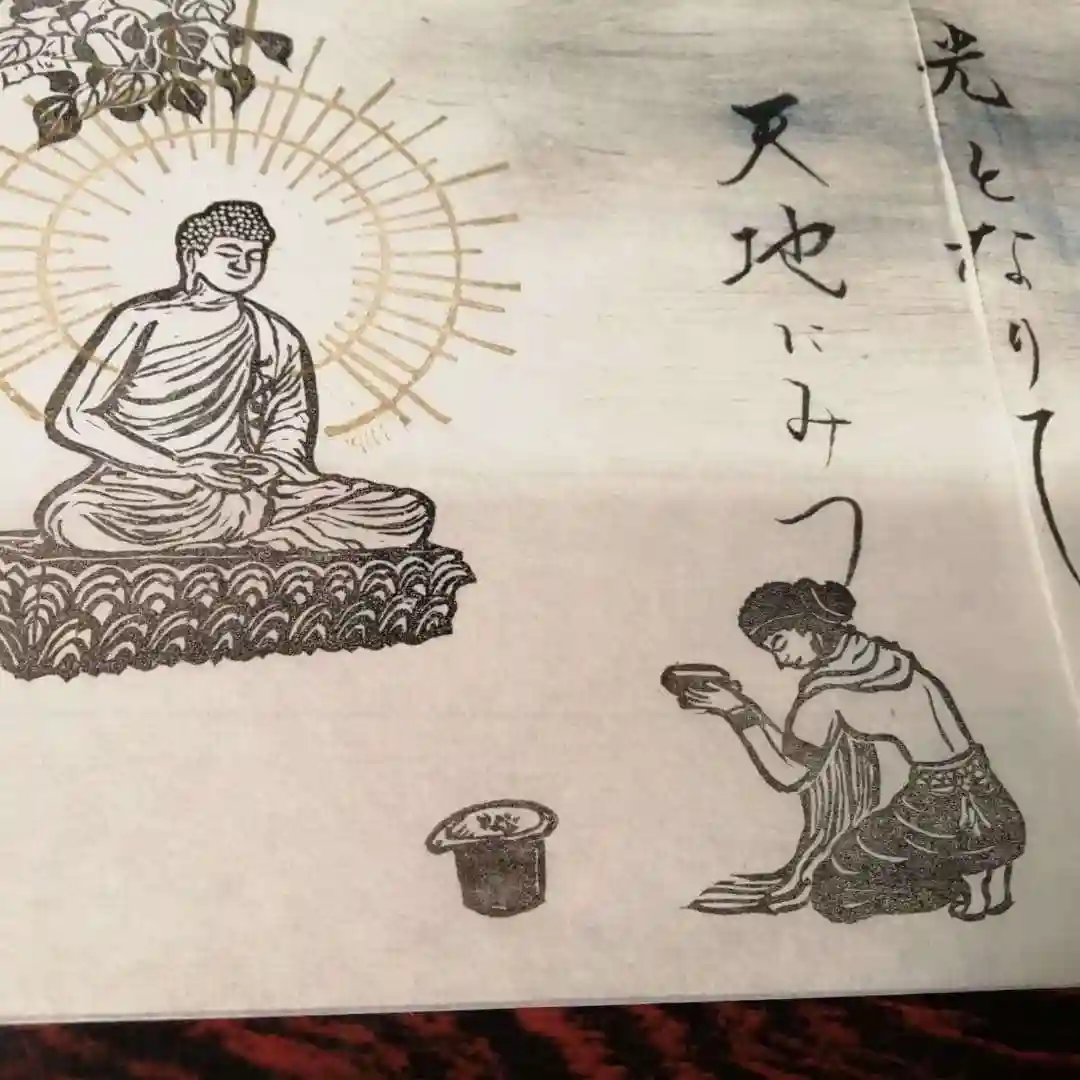 光となりて
天地にみつ